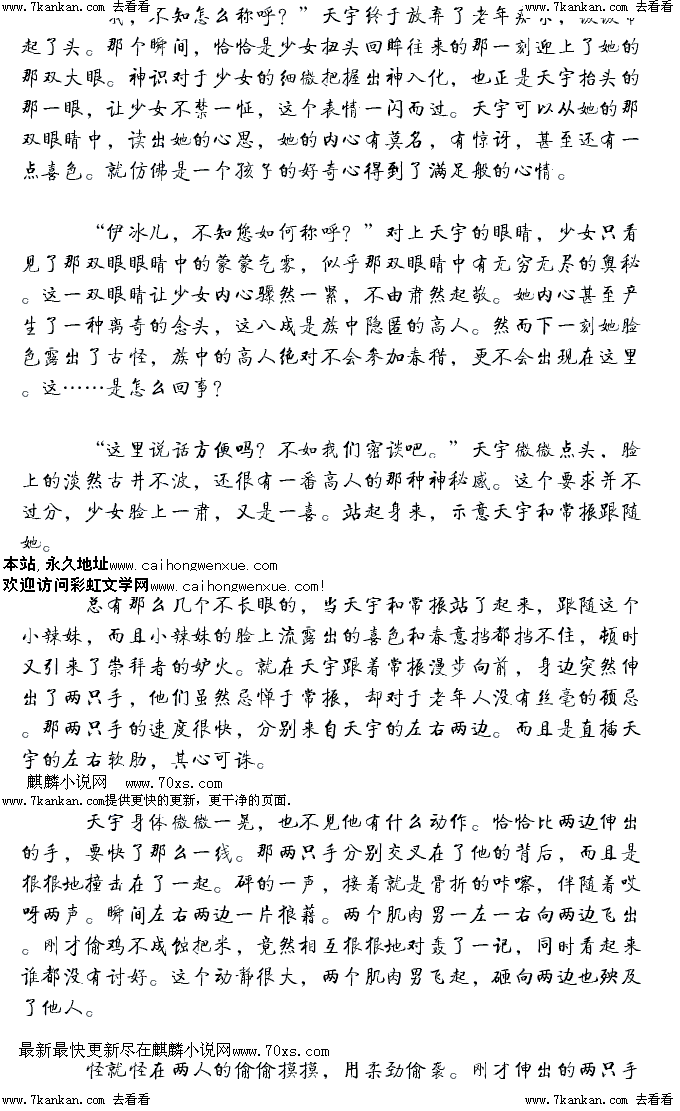 www.7kankan.com 去看看 www.7kankan.com 去看看
，不知怎么称呼？”天宇终于放弃了老年
起了头。那个瞬间，恰恰是少女扭头回眸往来的那一刻迎上了她的
那双大眼。神识对于少女的细微把握出神入化，也正是天宇抬头的
那一眼，让少女不禁一怔，这个表情一闪而过。天宇可以从她的那
双眼睛中，读出她的心思，她的内心有莫名，有惊讶，甚至还有一
点喜色。就仿佛是一个孩子的好奇心得到了满足般的心情。
“伊冰儿，不知您如何称呼？”对上天宇的眼睛，少女只看
见了那双眼眼睛中的蒙蒙气雾，似乎那双眼睛中有无穷无尽的奥秘
。这一双眼睛让少女内心骤然一紧，不由肃然起敬。她内心甚至产
生了一种离奇的念头，这八成是族中隐匿的高人。然而下一刻她脸
色露出了古怪，族中的高人绝对不会参加春猎，更不会出现在这里
。这……是怎么回事？
“这里说话方便吗？不如我们密谈吧。”天宇微微点头，脸
上的淡然古井不波，还很有一番高人的那种神秘感。这个要求并不
过分，少女脸上一肃，又是一喜。站起身来，示意天宇和常振跟随
她。
本站,永久地址www.caihongwenxue.com
欢迎访问彩虹文学网www.caihongwenxue.com!
总有那么几个不长眼的，当天宇和常振站了起来，跟随这个
小辣妹，而且小辣妹的脸上流露出的喜色和春意挡都挡不住，顿时
又引来了崇拜者的妒火。就在天宇跟着常振漫步向前，身边突然伸
出了两只手，他们虽然忌惮于常振，却对于老年人没有丝毫的顾忌
。那两只手的速度很快，分别来自天宇的左右两边。而且是直插天
宇的左右软肋，其心可诛。
麒麟小说网 www.70xs.com
www.7kankan.com提供更快的更新，更干净的页面.
天宇身体微微一晃，也不见他有什么动作。恰恰比两边伸出
的手，要快了那么一线。那两只手分别交叉在了他的背后，而且是
狠狠地撞击在了一起。砰的一声，接着就是骨折的咔嚓，伴随着哎
呀两声。瞬间左右两边一片狼藉。两个肌肉男一左一右向两边飞出
。刚才偷鸡不成蚀把米，竟然相互狠狠地对轰了一记，同时看起来
谁都没有讨好。这个动静很大，两个肌肉男飞起，砸向两边也殃及
了他人。
最新最快更新尽在麒麟小说网www.70xs.com
怪就怪在两人的偷偷摸摸，用柔劲偷袭。刚才伸出的两只手
www.7kankan.com 去看看 www.7kankan.com 去看看